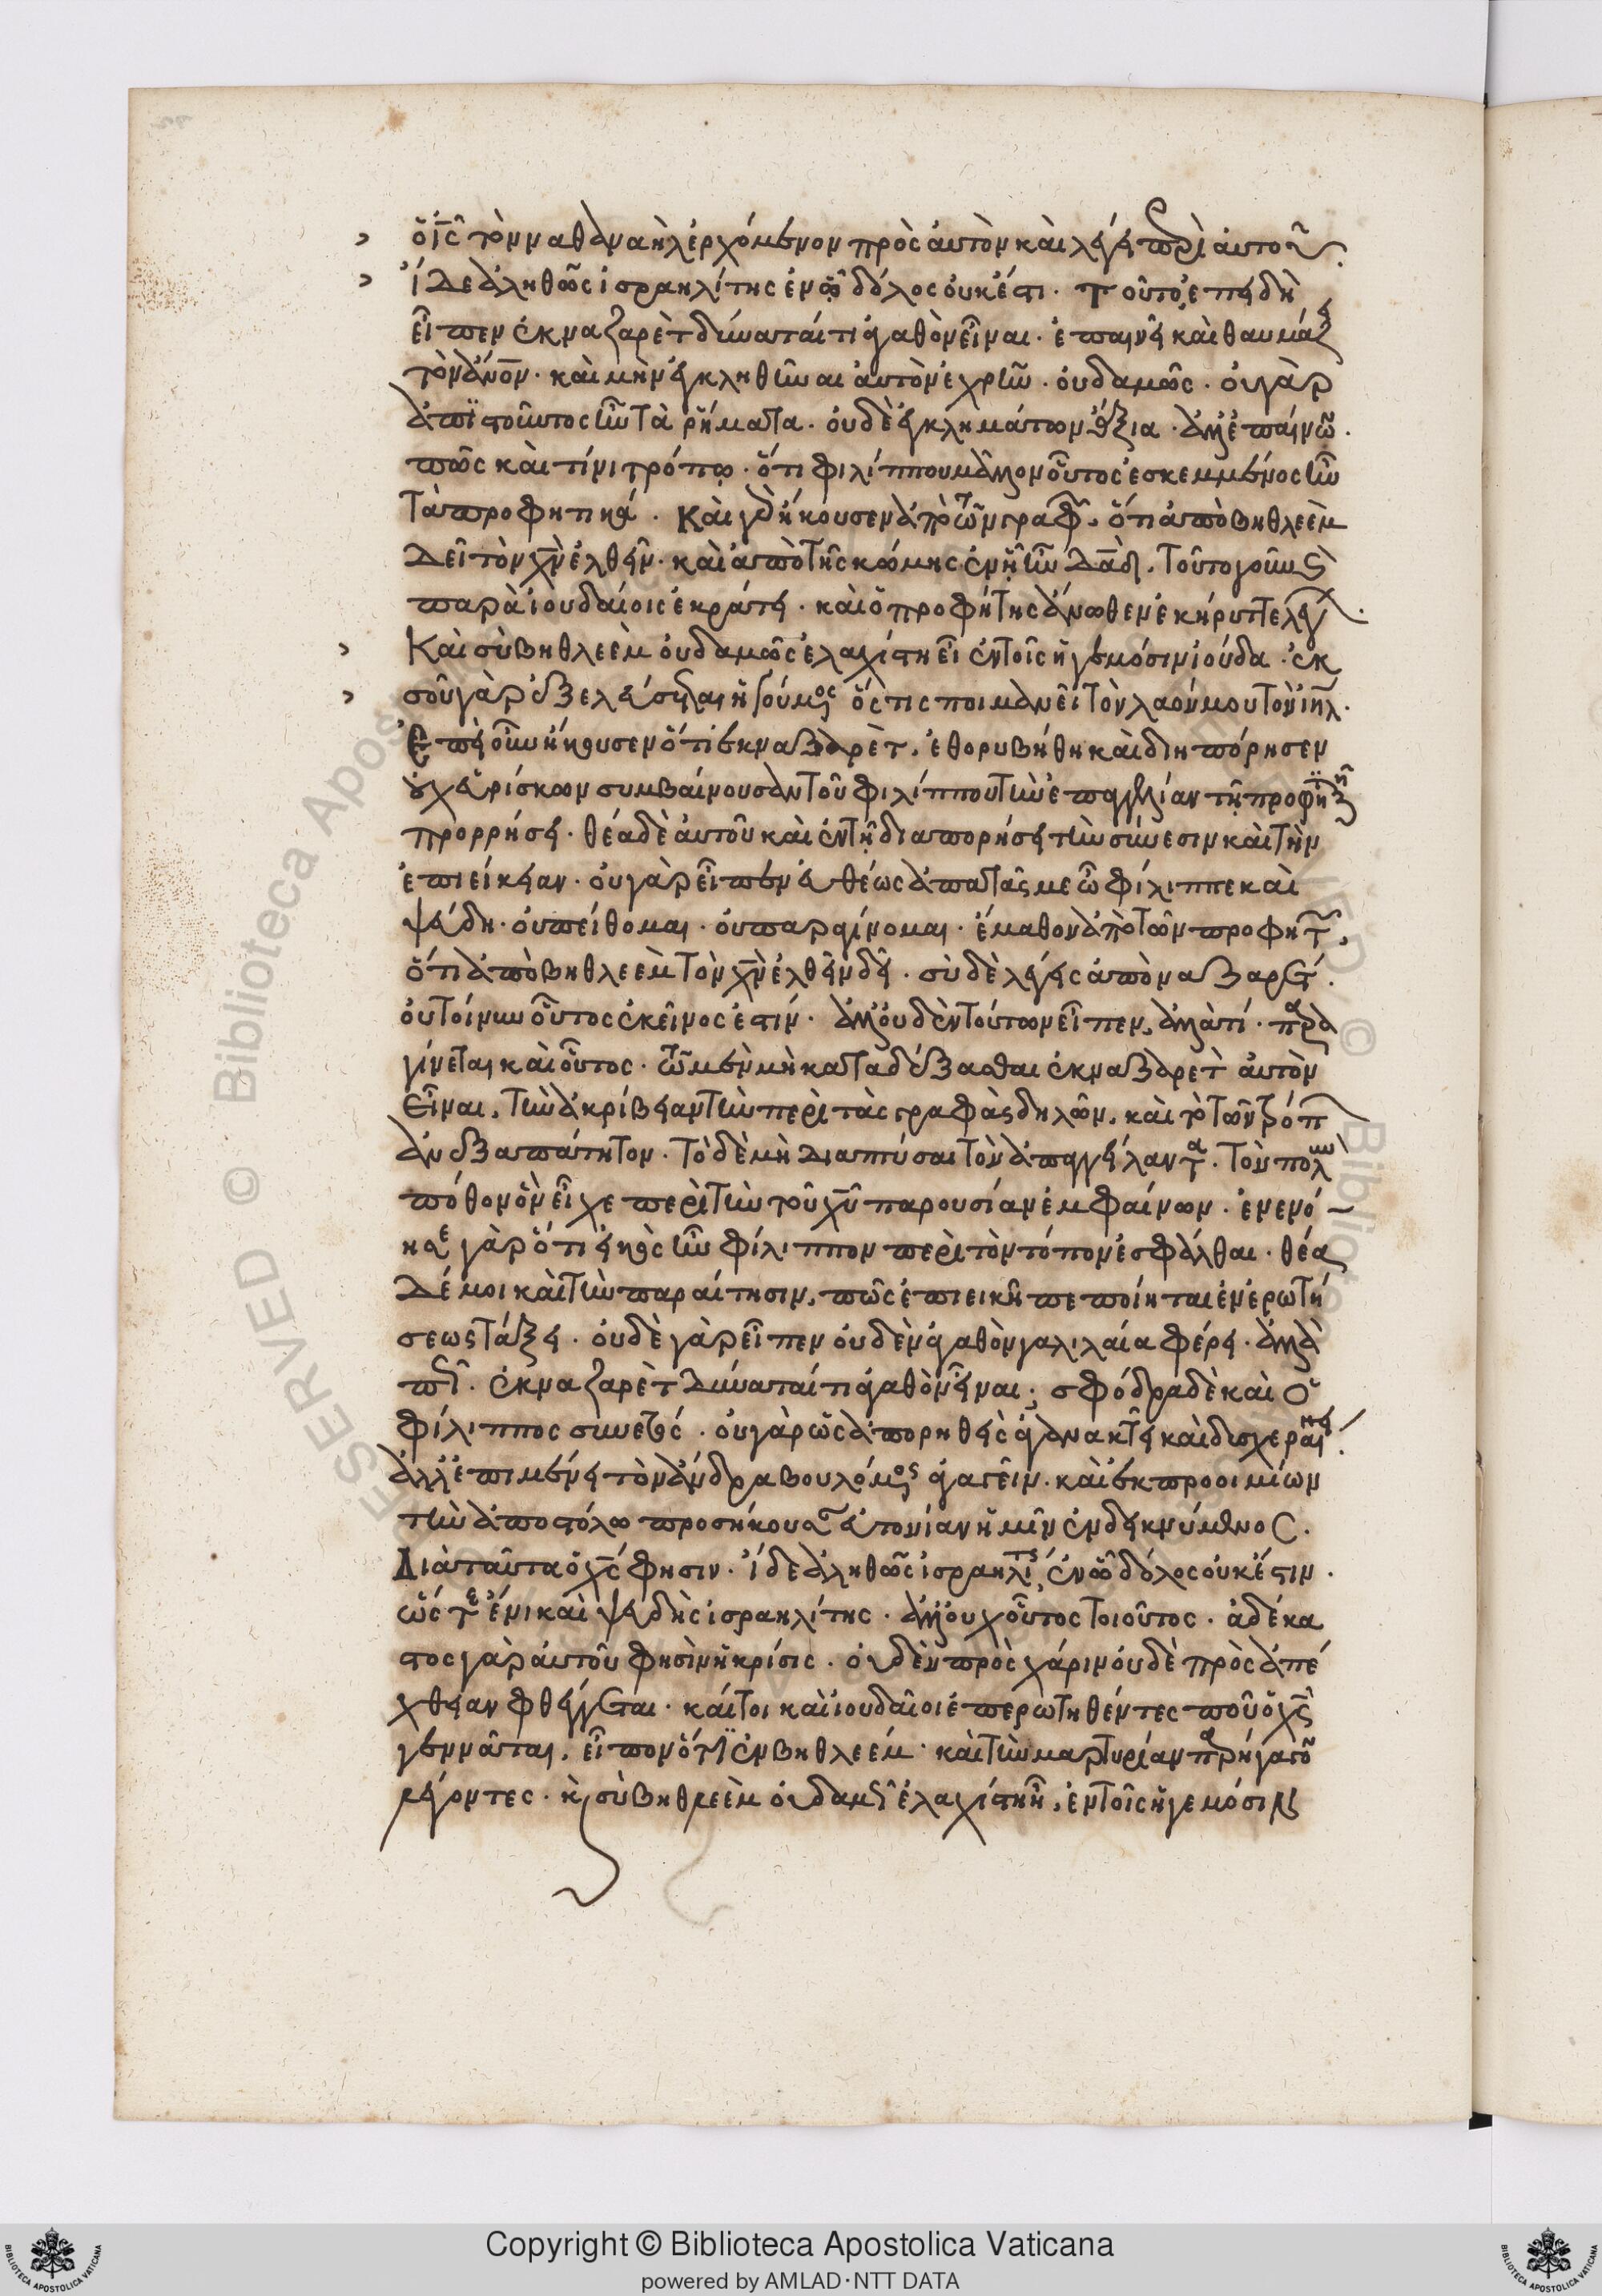 ὁ ἰς τὸν ναθαναὴλ ἐρχόμενον πρὸς αὐτὸν καὶ λέγει περὶ αὐτοῦ.
ἴδε ἀληθῶς ἰσραηλίτης ἐν ᾧ δόλος οὐκ ἔστι. Τοῦτο, ἐπειδὴ
εἶπεν ἐκ ναζαρὲτ δύναταί τι ἀγαθὸν εἶναι. ἐπαινεῖ καὶ θαυμάζει
τὸν ἄνον. καὶ μὴν ἐγκληθῆναι αὐτὸν ἐχρῆν. οὐδαμῶς. οὐ γὰρ
ἀπιστοῦντος ἦν τὰ ῥήματα. οὐδὲ ἐγκλημάτων ἄξια. ἀλλ' ἐπαίνων.
πῶς καὶ τίνι τρόπῳ. ὅτι φιλίππου μᾶλλον οὗτος ἐσκεμμένος ἦν
τὰ προφητικά. Καὶ γὰρ ἤκουσεν ἀπὸ τῶν γραφῶν. ὅτι ἀπὸ βηθλεὲμ
δεῖ τὸν χν ἐλθεῖν. καὶ ἀπὸ τῆς κώμης ἐν ᾗ ἦν δαδ. Τοῦτο γοῦν καὶ
παρὰ ἰουδαίοις ἐκράτει. καὶ ὁ προφήτης ἄνωθεν ἐκήρυττε λέγων.
Καὶ σὺ βηθλεὲμ οὐδαμῶς ἐλαχίστη εἶ ἐν τοῖς ἡγεμόσιν ἰούδα. ἐκ
σοῦ γὰρ ἐξελεύσεται ἡγούμενος ὅστις ποιμανεῖ τὸν λαόν μου τὸν ἰηλ.
Ἐπεὶ οὖν ἤκουσεν ὅτι ἐκ ναζαρὲτ. ἐθορυβήθη καὶ διηπόρησεν
οὐχ εὑρίσκων συμβαίνουσαν τοῦ φιλίππου τὴν ἐπαγγελίαν τῇ προφητικῇ
προρρήσει. θέα δὲ αὐτοῦ καὶ ἐν τῇ διαπορήσει τὴν σύνεσιν καὶ τὴν
ἐπιείκειαν. οὐ γὰρ εἶπεν εὐθέως ἀπατᾶς με ὦ φίλιππε καὶ
ψεύδη. οὐ πείθομαι. οὐ παραγίνομαι. ἔμαθον ἀπὸ τῶν προφητῶν.
ὅτι ἀπὸ βηθλεὲμ τὸν χν ἐλθεῖν δεῖ. σὺ δὲ λέγεις ἀπὸ ναζαρέτ.
οὐ τοίνυν οὗτος ἐκεῖνος ἐστίν. ἀλλ' οὐδὲν τούτων εἶπεν. ἀλλὰ τί. παρα
γίνεται καὶ οὗτος. τῶ μὲν μὴ καταδέξασθαι ἐκ ναζαρὲτ αὐτὸν
εἶναι. τὴν ἀκρίβειαν τὴν περὶ τὰς γραφὰς δηλῶν. καὶ τὸ τῶν τρόπων
ἀνεξαπάτητον. τὸ δὲ μὴ διαπτύσαι τὸν ἀπαγγείλαντα. τὸν πολὺν
πόθον ὃν εἶχε περὶ τὴν τοῦ χυ παρουσίαν ἐμφαίνων. ἐνενό
ησε γὰρ ὅτι εἰκὸς ἦν φίλιππον περὶ τὸν τόπον ἐσφάλθαι. θέα
δέ μοι καὶ τὴν παραίτησιν. πῶς ἐπιεικῆ πεποίηται ἐν ἐρωτή
σεως τάξει. οὐδὲ γὰρ εἶπεν οὐδὲν ἀγαθὸν γαλιλαία φέρει. ἀλλὰ
πῶς. ἐκ ναζαρὲτ δύναταί τι ἀγαθὸν εἶναι; σφόδρα δὲ καὶ ὁ
φίλιππος συνετός. οὐ γὰρ ὡς ἀπορηθεὶς ἀγανακτεῖ καὶ δυσχεραίνει.
ἀλλ' ἐπιμένει τὸν ἄνδρα βουλόμενος ἀγαγεῖν. καὶ ἐκ προοιμίων
τὴν ἀποστόλω προσήκουσαν εὐτονίαν ἡμῖν ἐνδεικνύμενος.
Διὰ ταῦτα ὁ χς φησιν. ἴδε ἀληθῶς ἰσραηλίτης, ἐν ᾧ δόλος οὐκ ἔστιν.
ὥστε ἔνι καὶ ψευδὴς ἰσραηλίτης. ἀλλ' οὐχ οὗτος τοιοῦτος. ἀδέκα
στος γὰρ αὐτοῦ φησὶν ἡ κρίσις. οὐδὲν πρὸς χάριν οὐδὲ πρὸς ἀπέ
χθειαν φθέγγεται. καίτοι καὶ ἰουδαῖοι ἐπερωτηθέντες ποῦ ὁ χς
γεννᾶται. εἶπον ὅτι ἐν βηθλεέμ. καὶ τὴν μαρτυρίαν παρήγαγον
λέγοντες. καὶ σὺ βηθλεὲμ οὐδαμῶς ἐλαχίστη εἶ. ἐν τοῖς ἡγεμόσιν
Copyright © Biblioteca Apostolica Vaticana
powered by AMLAD·NTT DATA